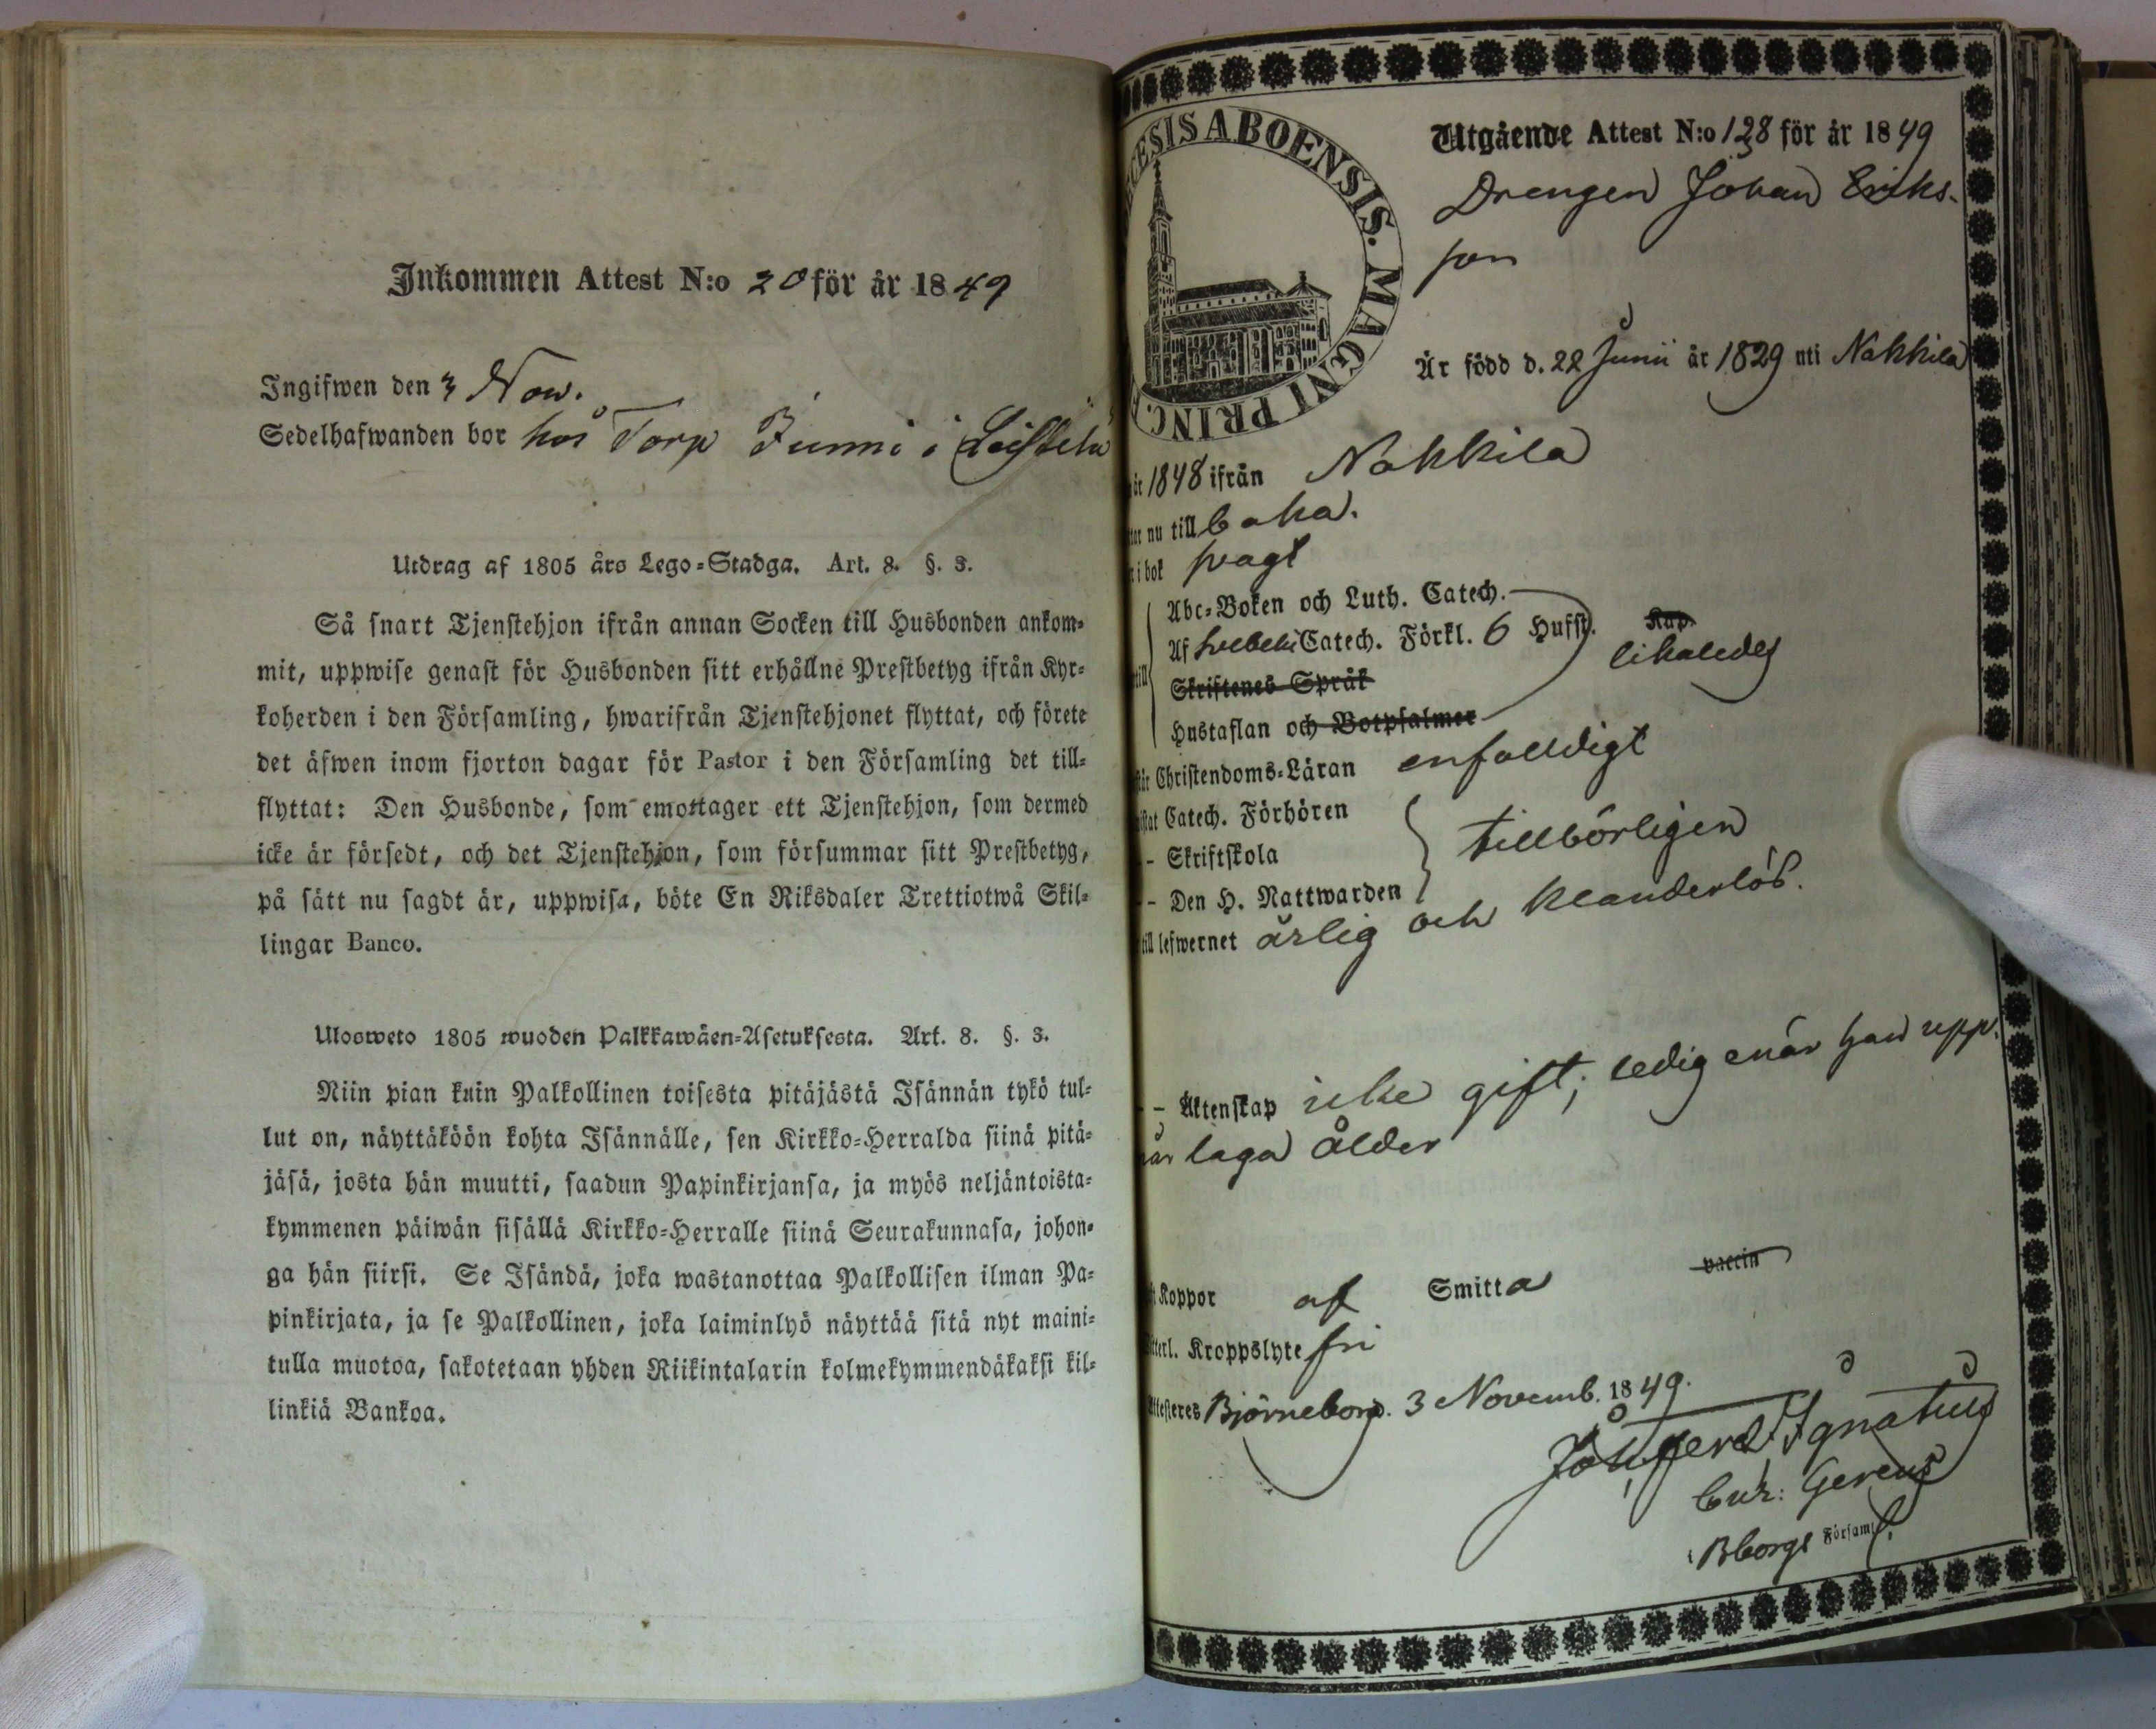 Inkommen Attest N:o 20 för år 1849
Ingifwen den 3 Now.
Sedelhafwanden bor hos Torp Junni i Leistela
Utdrag af 1805 års Lego-Stadga. Art. 8. §. 3.
Så snart Tjenstehjon ifrån annan Socken till Husbonden ankom-
mit, uppwise genast för Husbonden sitt erhållne Prestbetyg ifrån Kyr-
koherden i den Församling, hwarifrån Tjenstehjonet flyttat, och förete
det äfwen inom fjorton dagar för Pastor i den Församling det till-
flyttat: Den Husbonde, som emottager ett Tjenstehjon, som dermed
icke är försedt, och det Tjenstehjon, som försummar sitt Prestbetyg,
på sätt nu sagdt är, uppwisa, böte En Riksdaler Trettiotwå Skil-
lingar Banco.
Ulosweto 1805 wuoden Palkkawäen-Asetuksesta. Art. 8. §. 3.
Niin pian kuin Palkollinen toisesta pitäjästä Isännän tykö tul-
lut on, näyttäköön kohta Isännälle, sen Kirkko-Herralda siinä pitä-
jäsä, josta hän muutti, saadun Papinkirjansa, ja myös neljäntoista-
kymmenen päiwän sisällä Kirkko-Herralle siinä Seurakunnasa, johon-
ga hän siirsi. Se Isändä, joka wastanottaa Palkollisen ilman Pa-
pinkirjata, ja se Palkollinen, joka laiminlyö näyttää sitä nyt maini-
tulla muotoa, sakotetaan yhden Riikintalarin kolmekymmendäkaksi kil-
linkiä Bankoa.
CESIS ABOENSIS. MAGNI PRINC. F
Utgående Attest N:o 128 för år 1849
Drengen Johan Eriks-
son
Är född d. 22 Junii år 1829 uti Nakkila
år 1848 ifrån Nakkila
tar nu tillbaka.
i bok svagt
Abc-Boken och Luth. Catech.
Af Svebelii Catech. Förkl. 6 Hufst. Kap. likaledes
till
Skriftenes Språk
Hustaflan och Botpsalmer
Christendoms-Läran enfalldigt
Catech. Förhören
- Skriftskola tillbörligen
- Den H. Nattwarden
till lefwernet ärlig och klanderlös.
- Äktenskap icke gift; ledig enär han upp-
når laga ålder
Koppor af Smitta vaccin
Kroppslyte fri
Attesteres Björneborg d. 3 Novemb. 1849.
Joh. Ferd. Ignatius
Cur: Gerens
i Bborgs Församl.